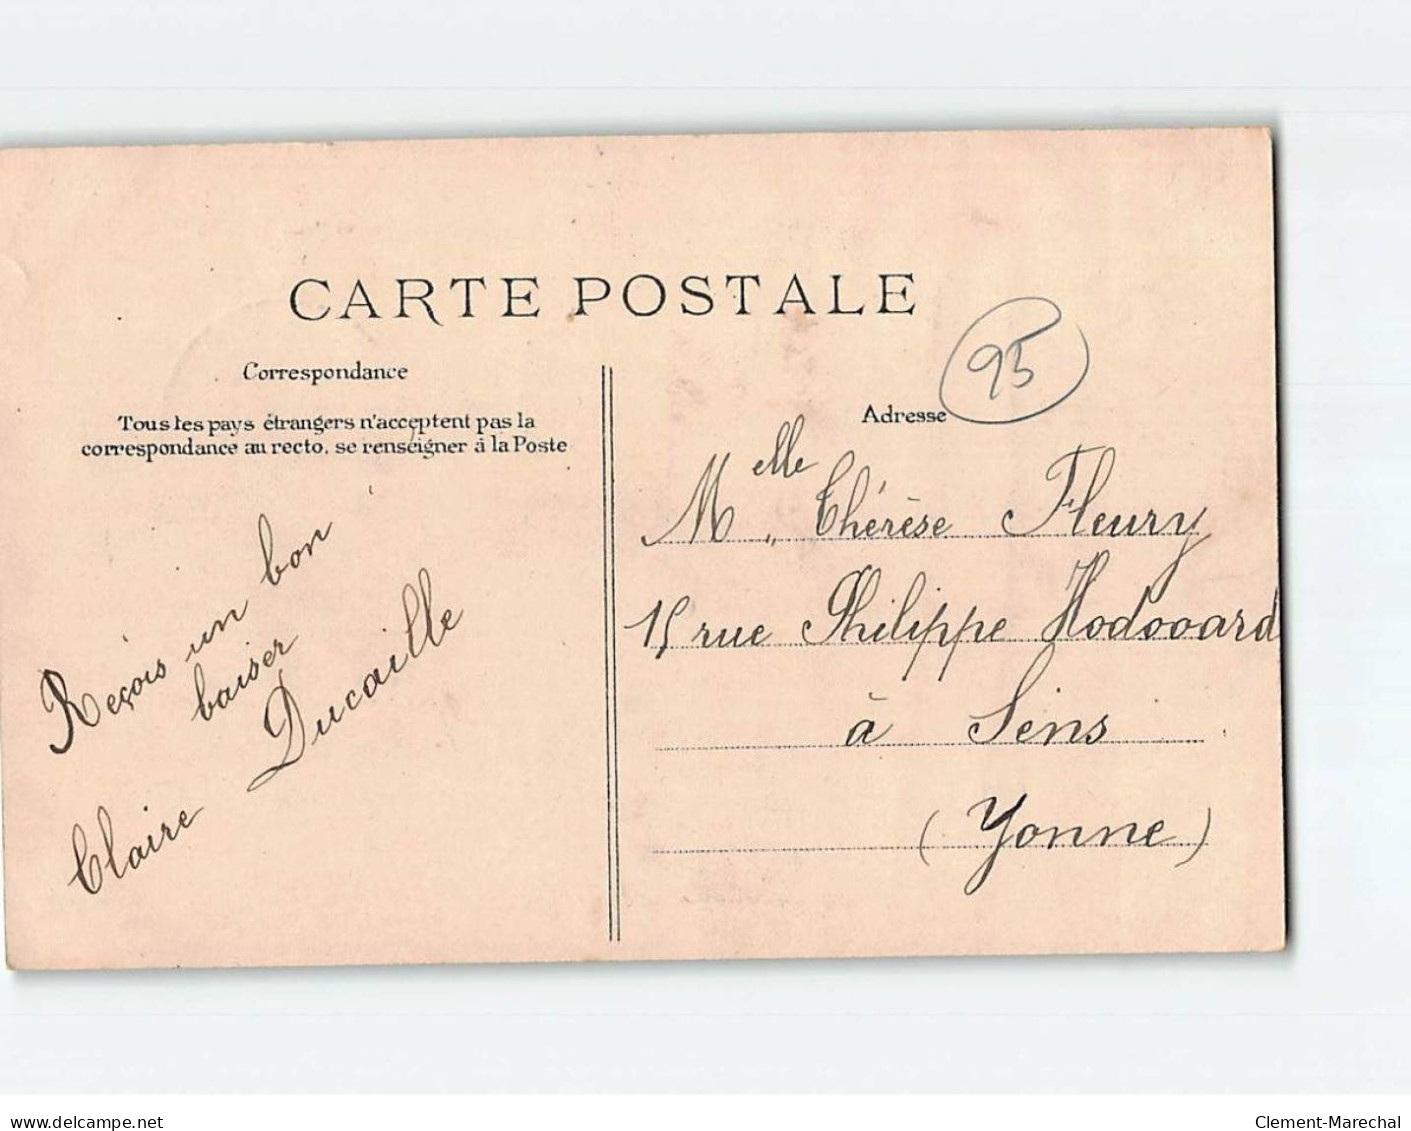 CARTE POSTALE
Correspondance
Tous les pays étrangers n'acceptent pas la
correspondance au recto, se renseigner à la Poste
Reçois un bon
baiser
Claire Ducaille
95
Adresse
Melle Thérèse Fleury
15 rue Philippe Hodooard
à Sens
(Yonne)
www.delcampe.net
Clement-Marechal